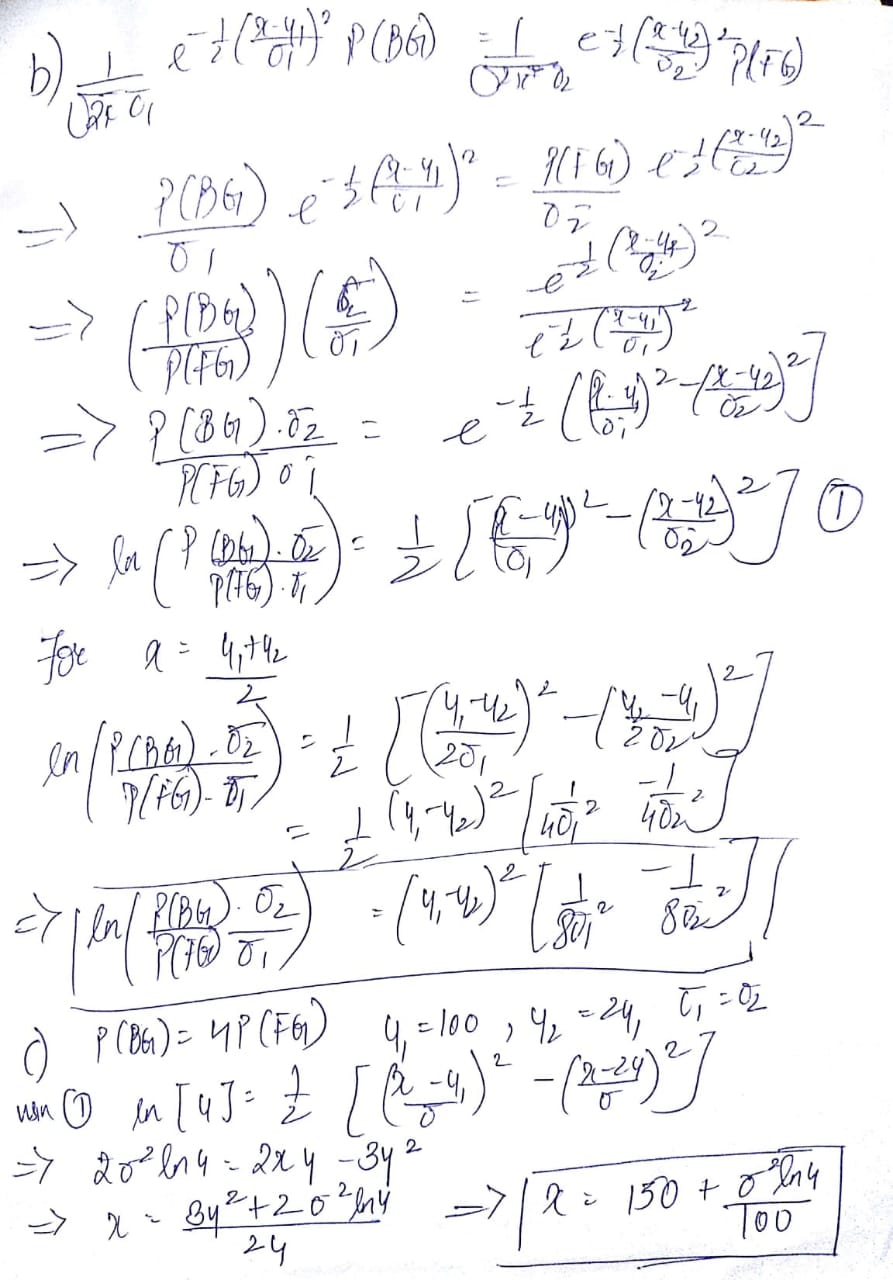 b) 1/(√2π σ₁) e^(-1/2((x-μ₁)/σ₁)²) P(BG) = 1/(√2π σ₂) e^(-1/2((x-μ₂)/σ₂)²) P(FG)
=> P(BG)/σ₁ e^(-1/2((x-μ₁)/σ₁)²) = P(FG)/σ₂ e^(-1/2((x-μ₂)/σ₂)²)
=> (P(BG)/P(FG)) (σ₂/σ₁) = e^(-1/2((x-μ₂)/σ₂)²) / e^(-1/2((x-μ₁)/σ₁)²)
=> P(BG).σ₂ / P(FG) σ₁ = e^(-1/2(((x-μ₁)/σ₁)² - ((x-μ₂)/σ₂)²])
=> ln(P(BG).σ₂ / P(FG).σ₁) = 1/2 [((x-μ₁)/σ₁)² - ((x-μ₂)/σ₂)²] ①
For x = (μ₁+μ₂)/2
ln(P(BG).σ₂ / P(FG).σ₁) = 1/2 [((μ₁-μ₂)/2σ₁)² - ((μ₂-μ₁)/2σ₂)²]
= 1/2 (μ₁-μ₂)² [1/4σ₁² - 1/4σ₂²]
=> ln(P(BG).σ₂ / P(FG) σ₁) = (μ₁-μ₂)² [1/8σ₁² - 1/8σ₂²]
c) P(BG) = 4P(FG) μ₁ = 100, μ₂ = 2μ, σ₁ = σ₂
① ln[4] = 1/2 [((x-μ₁)/σ)² - ((x-2μ)/σ)²]
=> 2σ² ln4 = 2xμ - 3μ²
=> x = (3μ² + 2σ² ln4)/2μ => x = 150 + σ² ln4/100